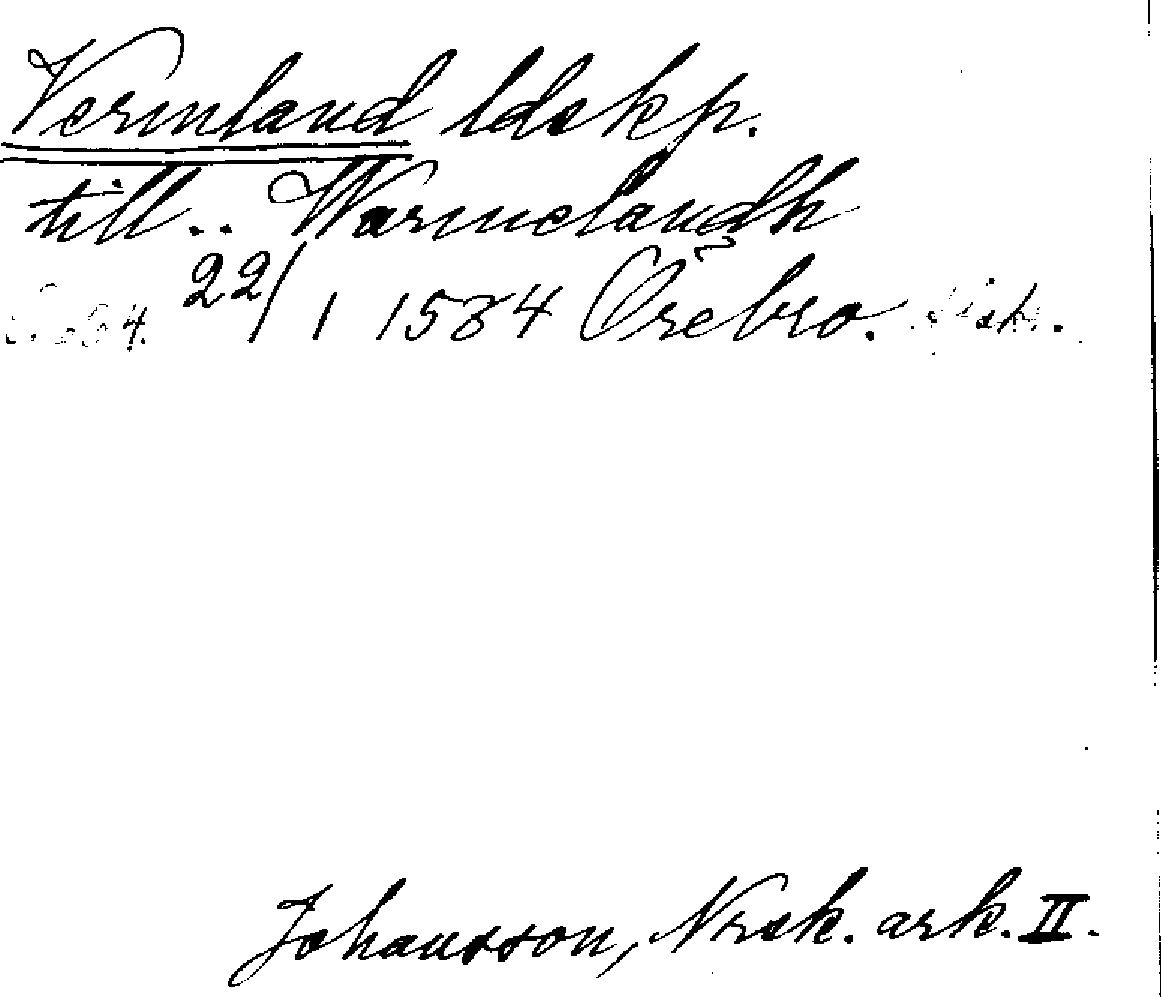 Vermland ldskp.
till.. Warmelandh
22/1 1584 Örebro.
Johansson, Nrsk. ark. II.